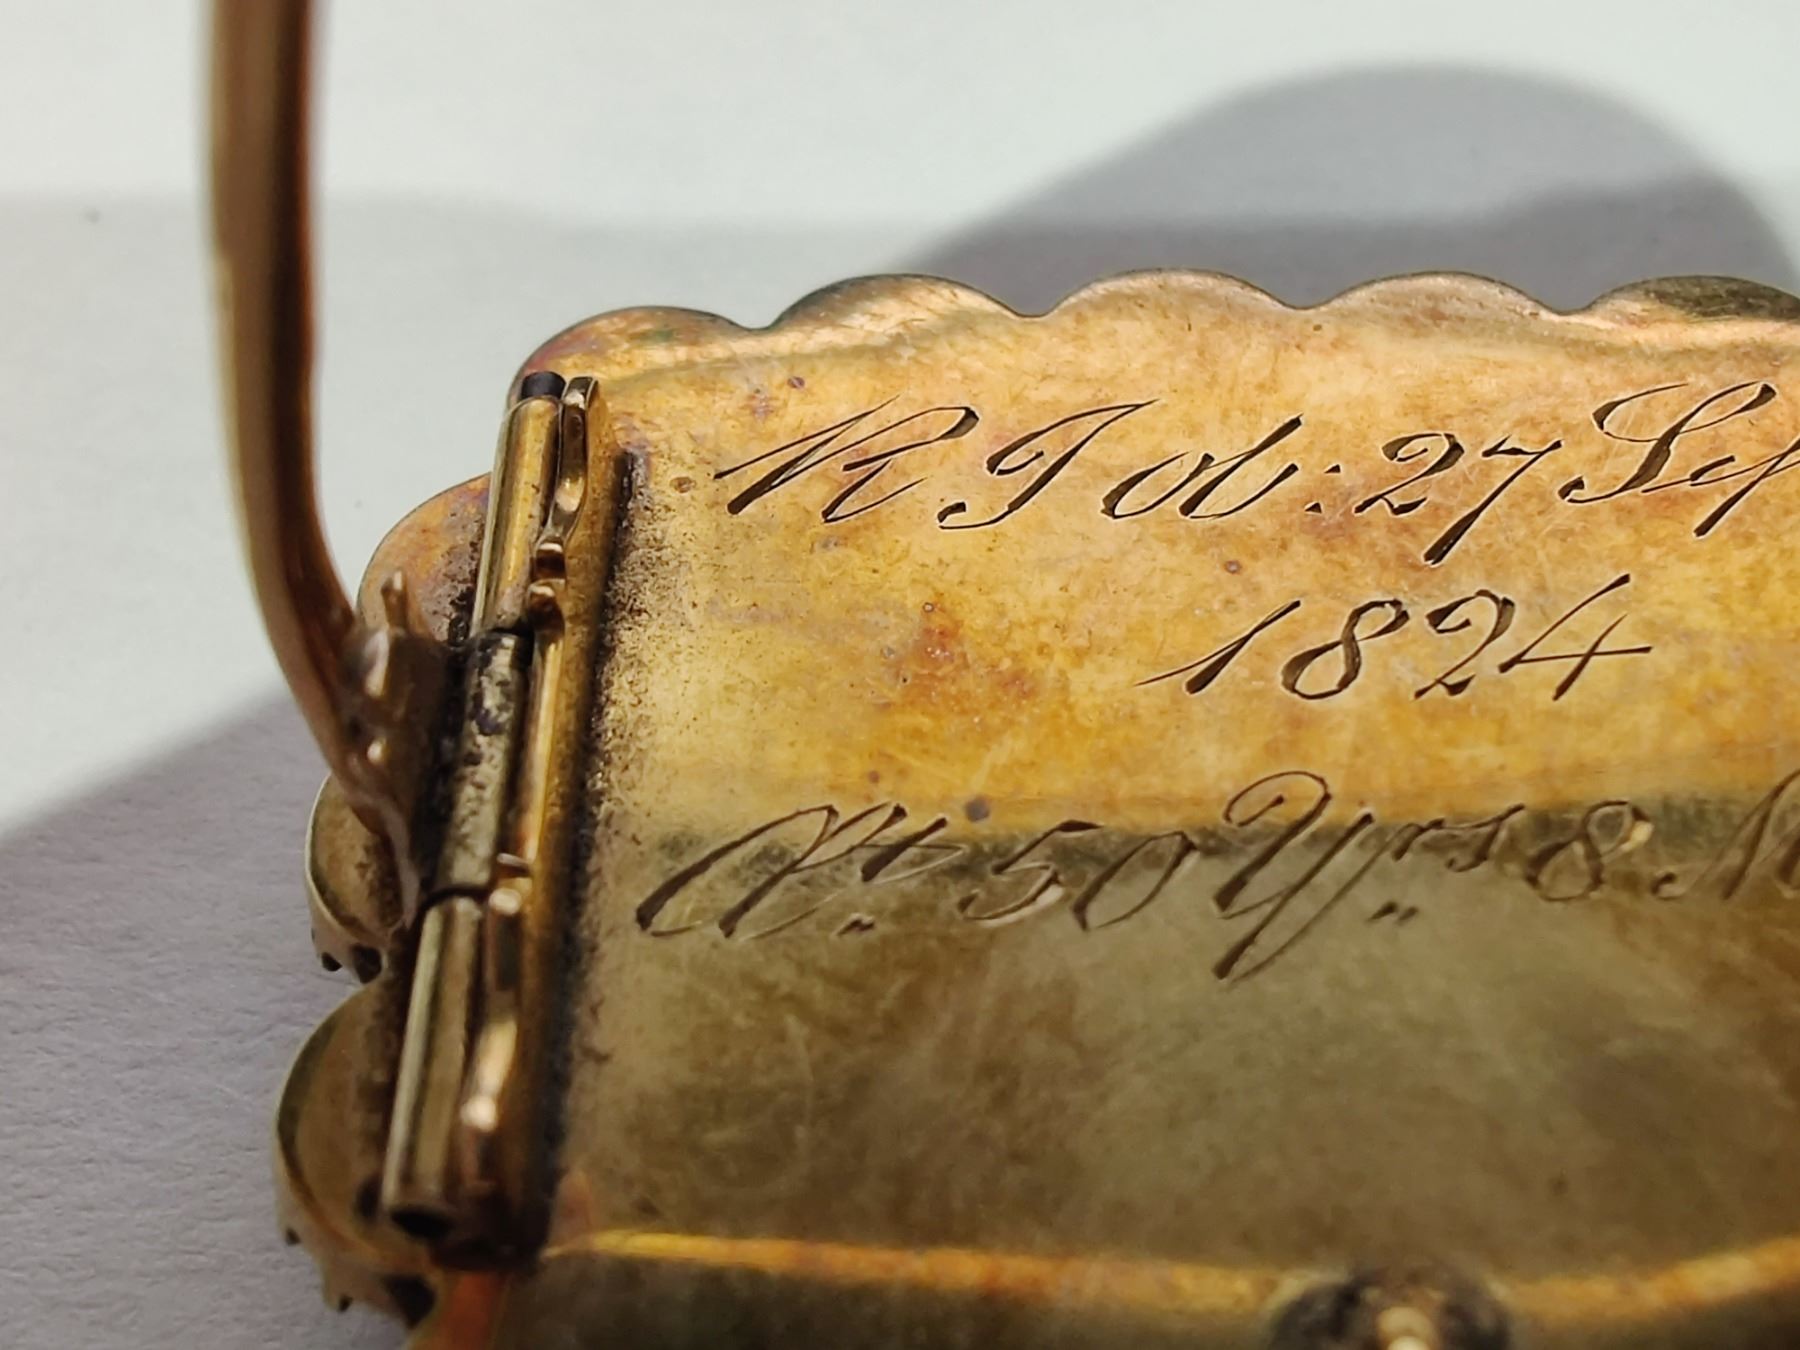 R I ob: 27 Sep
1824
Æt. 50 Yrs 8 M